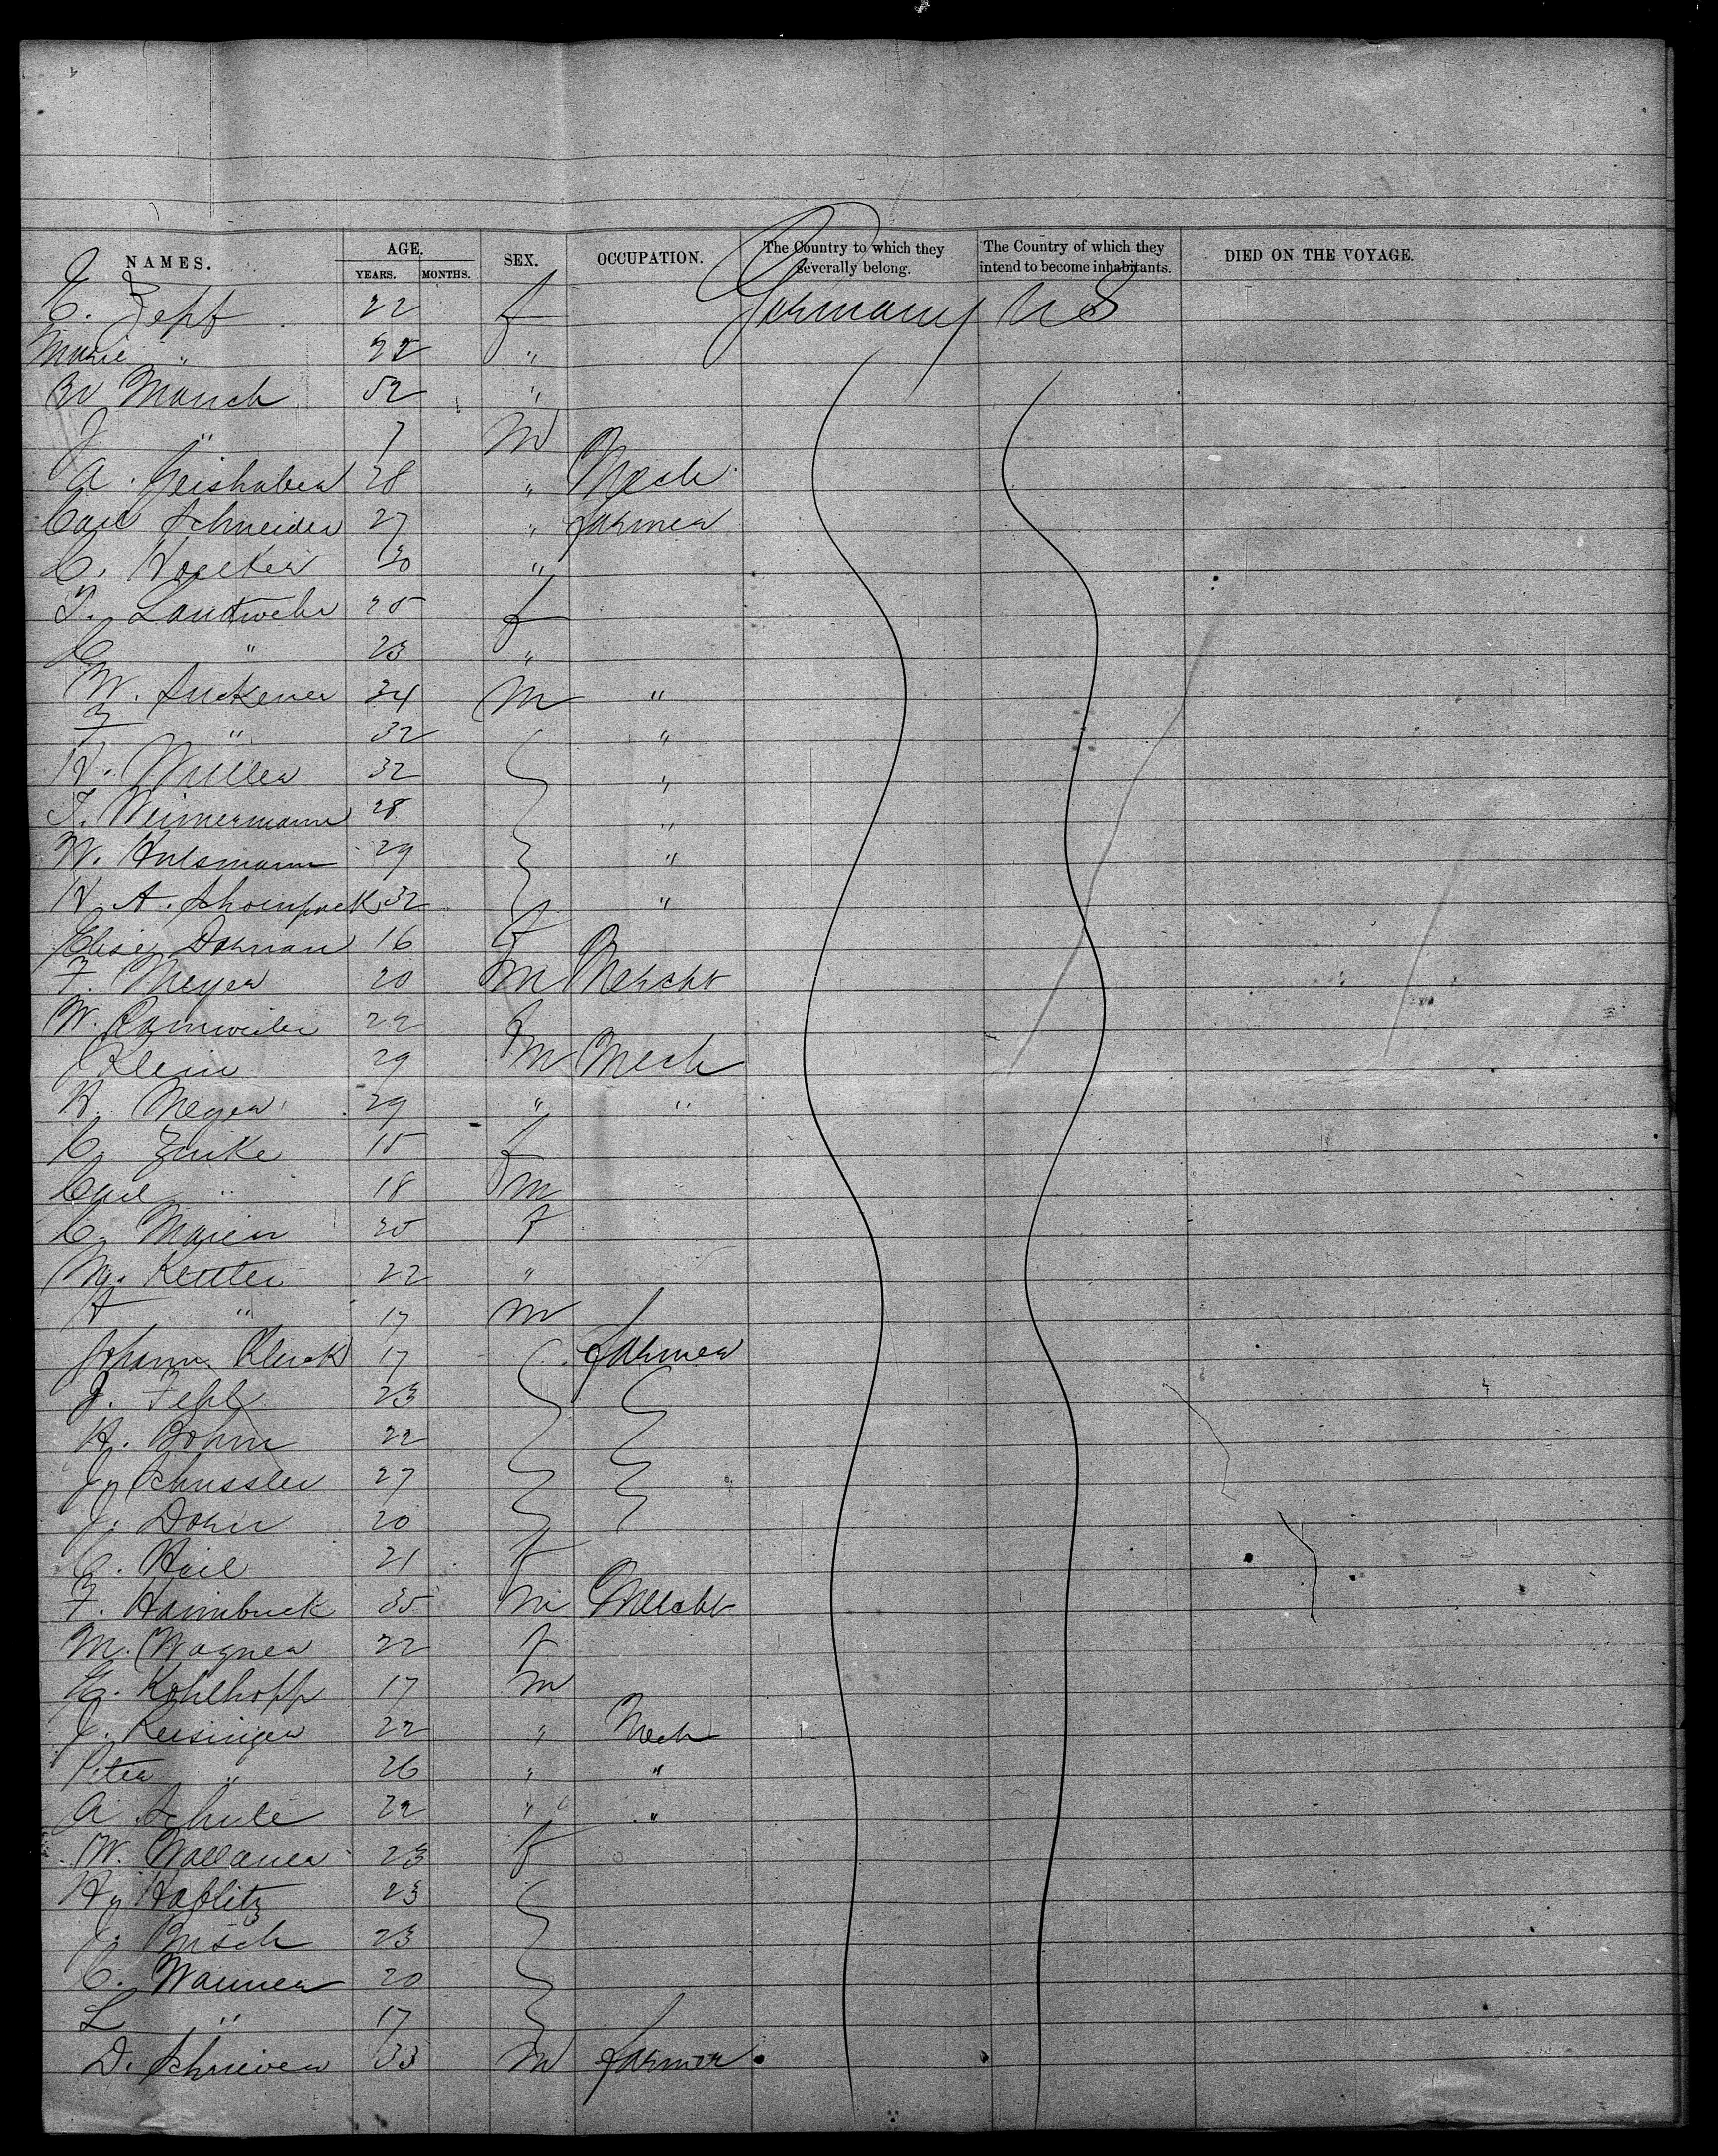 NAMES. AGE. YEARS. MONTHS. SEX. OCCUPATION. The Country to which they severally belong. The Country of which they intend to become inhabitants. DIED ON THE VOYAGE.
E. Zepf 22 f Germany US
Marie " 22 "
W Manch 52 "
J " 7 M
A. Geishaber 28 " Mech
Carl Schneider 27 " farmer
C. Hoelker 30 "
T. Landwehr 25 f
C " 23 "
W. Suckener 34 M "
F " 32 "
H. Muller 32 "
F. Weimermann 28 "
W. Hulsmann 29 "
H. A. 32 "
Elise Dorman 16 f
F. Meyer 20 M Mercht
W. 22
J Klein 29 M Mech
H. Meyer 29 " "
C. Zinke 15 f
Carl " 18 M
C. Maier 20 f
M. Kettler 22 "
A " 17 M
Johann Kluck 17 farmer
J. Fehl 23
H. Bohm 22
J. Schussler 27
J. Dorn 20
C. Heil 21 f
F. Hambuck 35 M Mercht
M. Wagner 22 f
E. Kohlhopp 17 M
J. Reisinger 22 " Mech
Peter " 26 " "
A Schule 22 " "
W. Wallauer 23 f
H. Haflitz 23
J. Busch 23
C. Wanner 20
L " 17
D. Schriever 33 M farmer